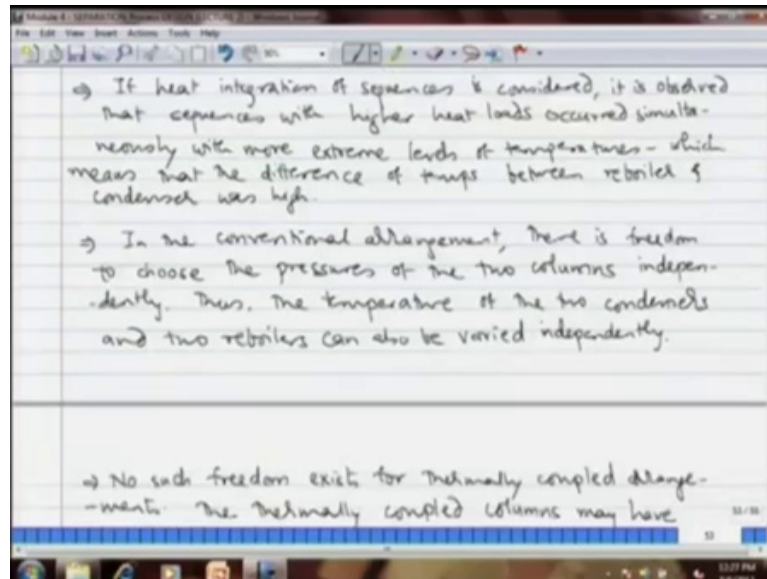 Module 4 - SEPARATION Process DESIGN (LECTURE 2) - Windows Journal
File Edit View Insert Actions Tools Help
⇒ If heat integration of sequences is considered, it is observed
that sequences with higher heat loads occurred simulta-
neously with more extreme levels of temperatures - which
means that the difference of temps between reboiler &
condenser was high.
⇒ In the conventional arrangement, there is freedom
to choose the pressures of the two columns indepen-
-dently. Thus, the temperature of the two condensers
and two reboilers can also be varied independently.
⇒ No such freedom exists for thermally coupled arrange-
-ment. The thermally coupled columns may have
53
12:27 PM